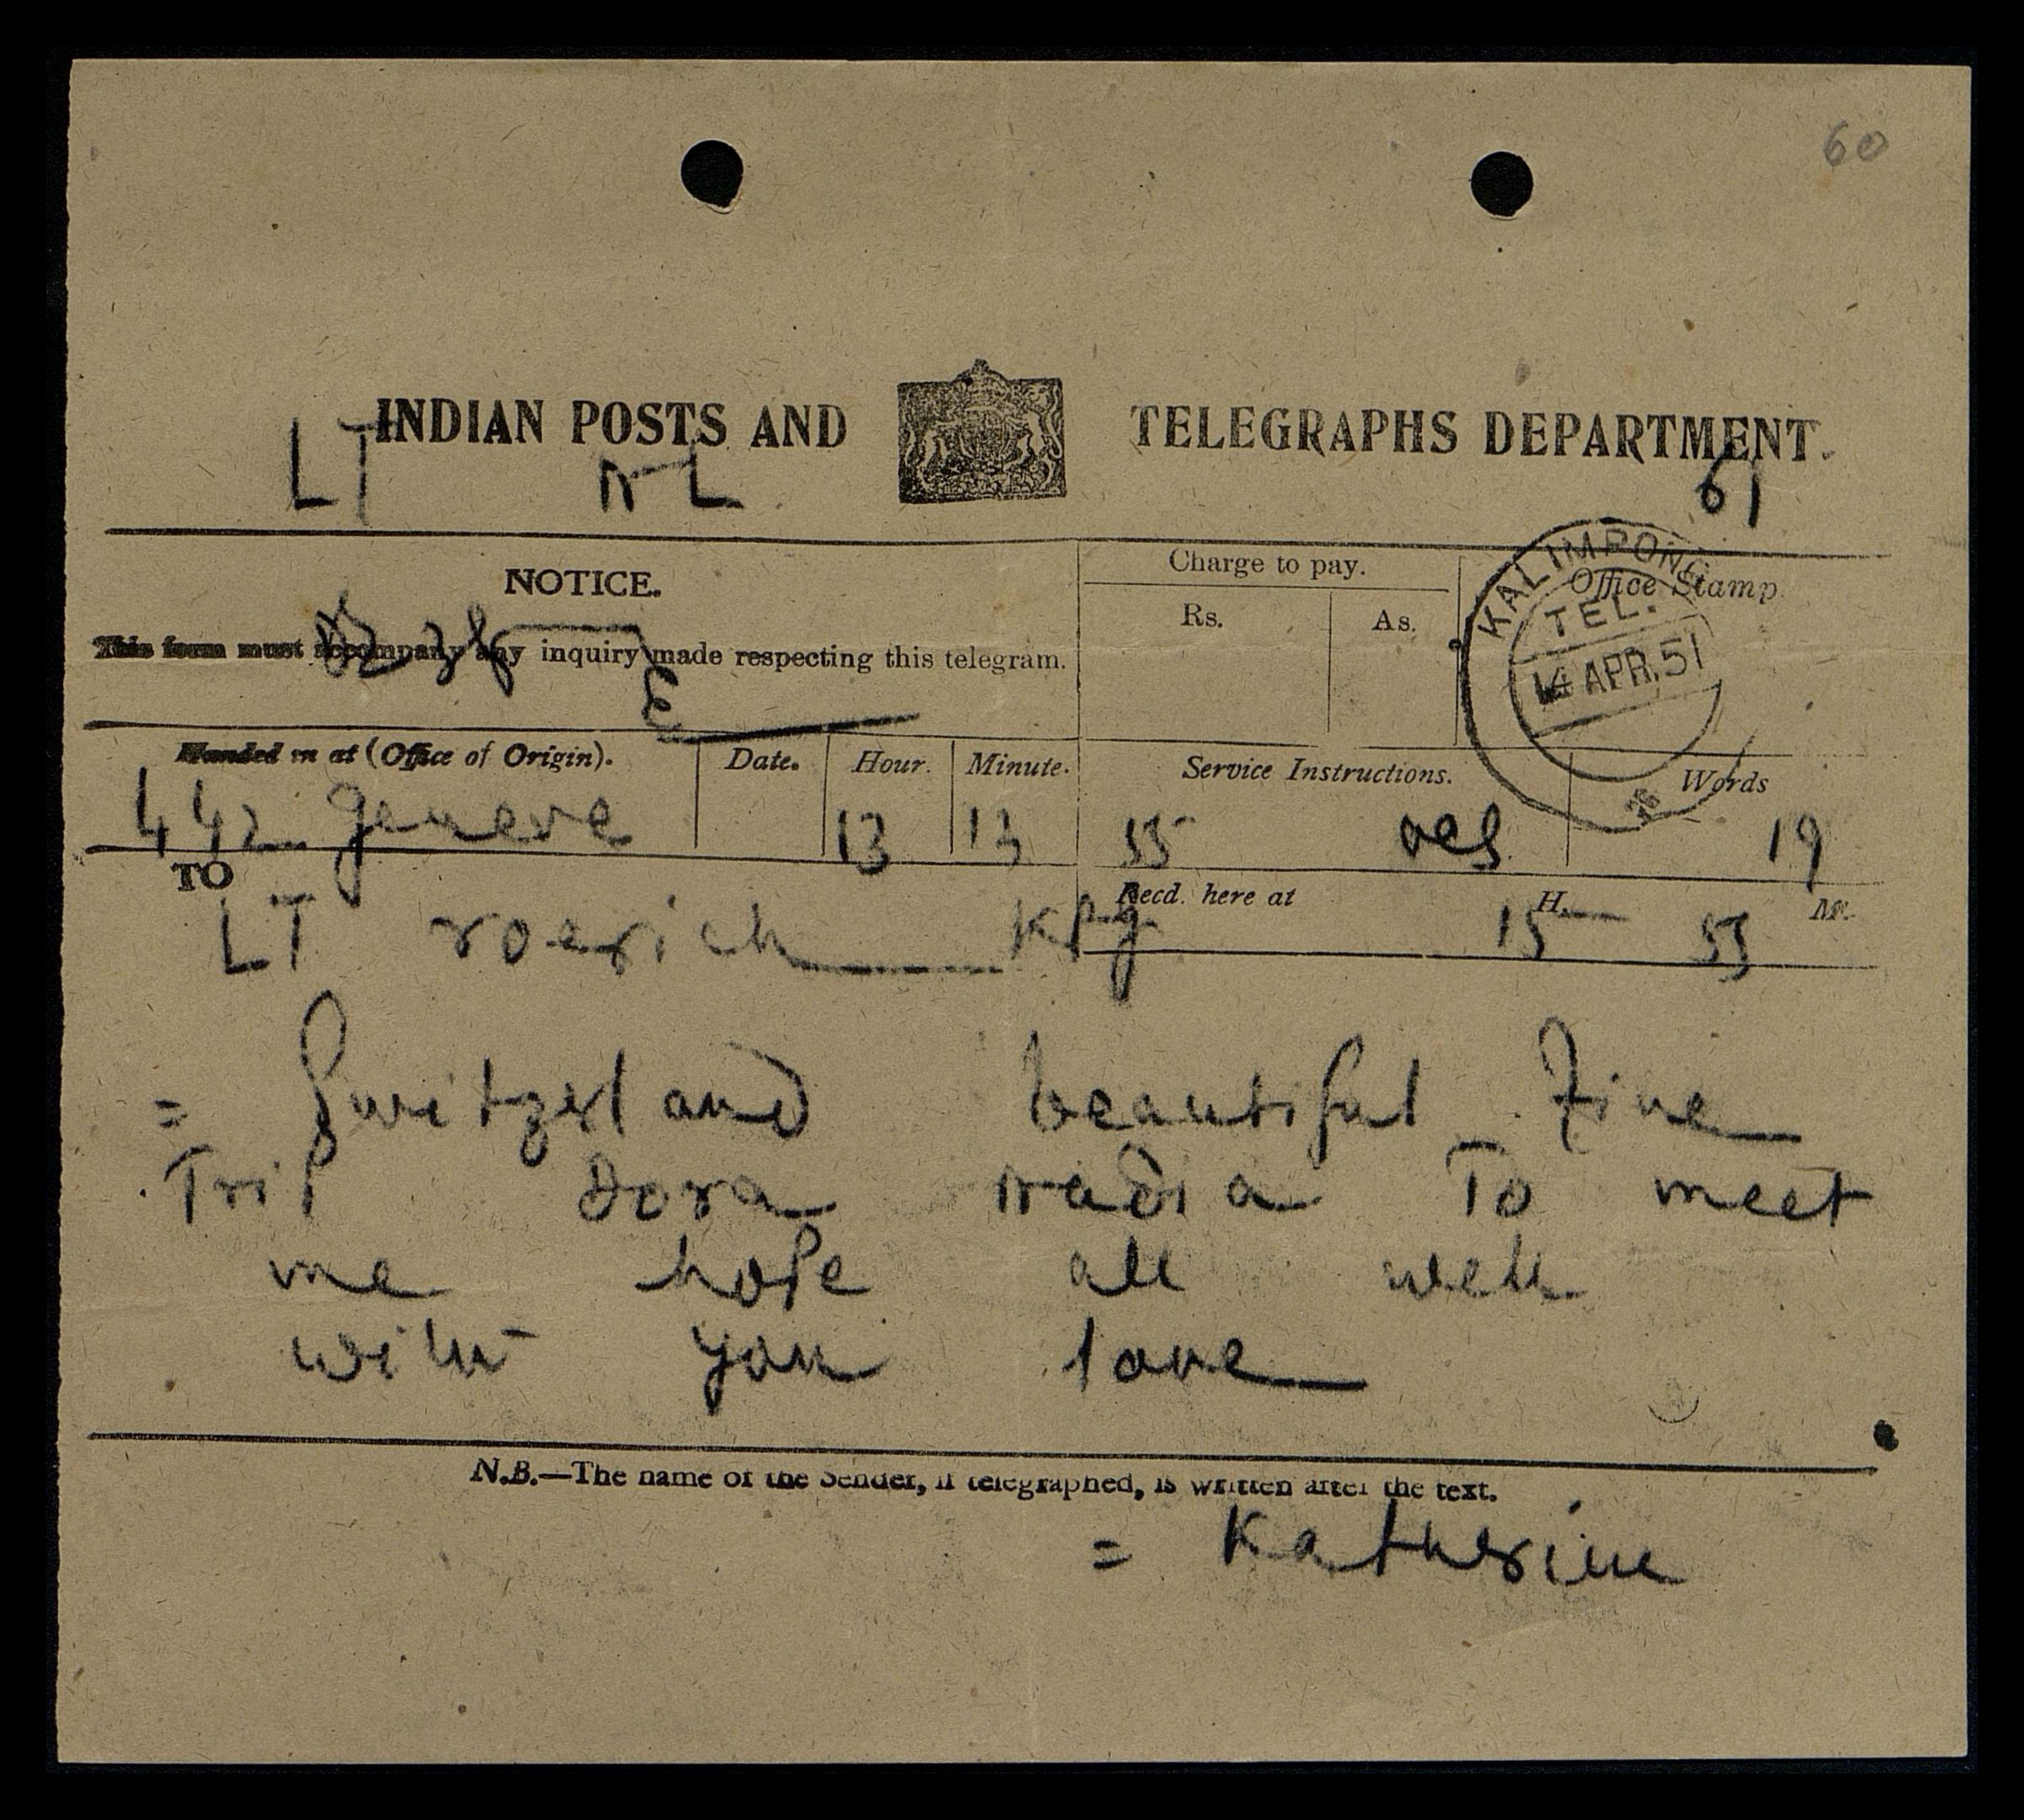 60
INDIAN POSTS AND TELEGRAPHS DEPARTMENT.
LT NL 61
NOTICE.
This form must accompany any inquiry made respecting this telegram.
Charge to pay.
Rs. As.
Office Stamp
KALIMPONG
TEL.
14 APR. 51
Handed in at (Office of Origin). Date. Hour. Minute. Service Instructions. Words
442 geneve 13 13 55 19
TO
Recd. here at 15 H. 55 M.
LT roerich kpg
= Switzerland beautiful fine
Trip Dora nadia To meet
me hope all well
with you love
N.B.—The name of the Sender, if telegraphed, is written after the text.
= Katherine